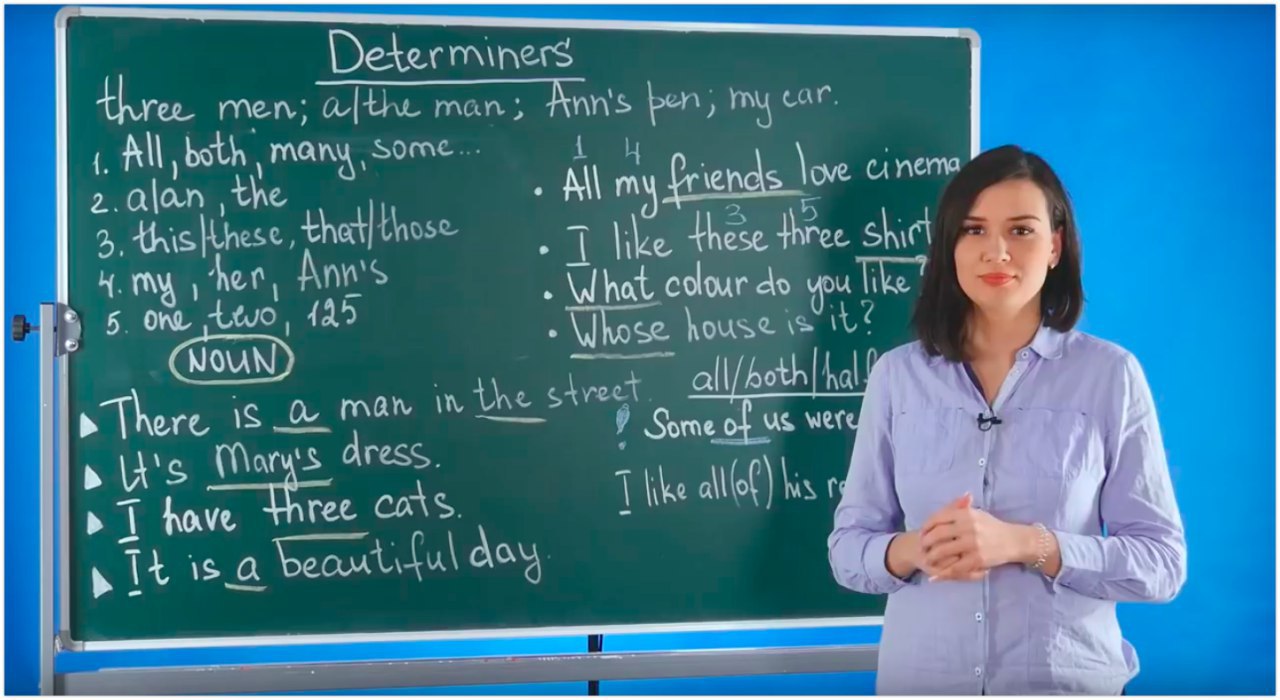 Determiners
three men; a/the man; Ann's pen; my car.
1. All, both, many, some...
2. a/an, the
3. this/these, that/those
4. my, her, Ann's
5. one, two, 125
NOUN
▲ There is a man in the street.
▲ It's Mary's dress.
▲ I have three cats.
▲ It is a beautiful day.
1 4
• All my friends love cinema
3 5
• I like these three shirt
• What colour do you like ?
• Whose house is it?
all/both/half
! Some of us were
I like all (of) his